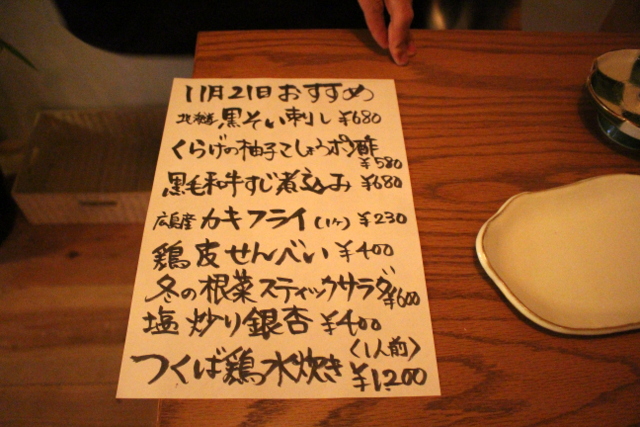 11月21日おすすめ
北海道 黒そい刺し ¥680
くらげの柚子こしょうポン酢
¥580
黒毛和牛すじ煮込み ¥680
広島産 カキフライ(1ヶ) ¥230
鶏皮せんべい ¥400
冬の根菜スティックサラダ
¥600
塩炒り銀杏 ¥400
〈1人前〉
つくば鶏水炊き ¥1,200